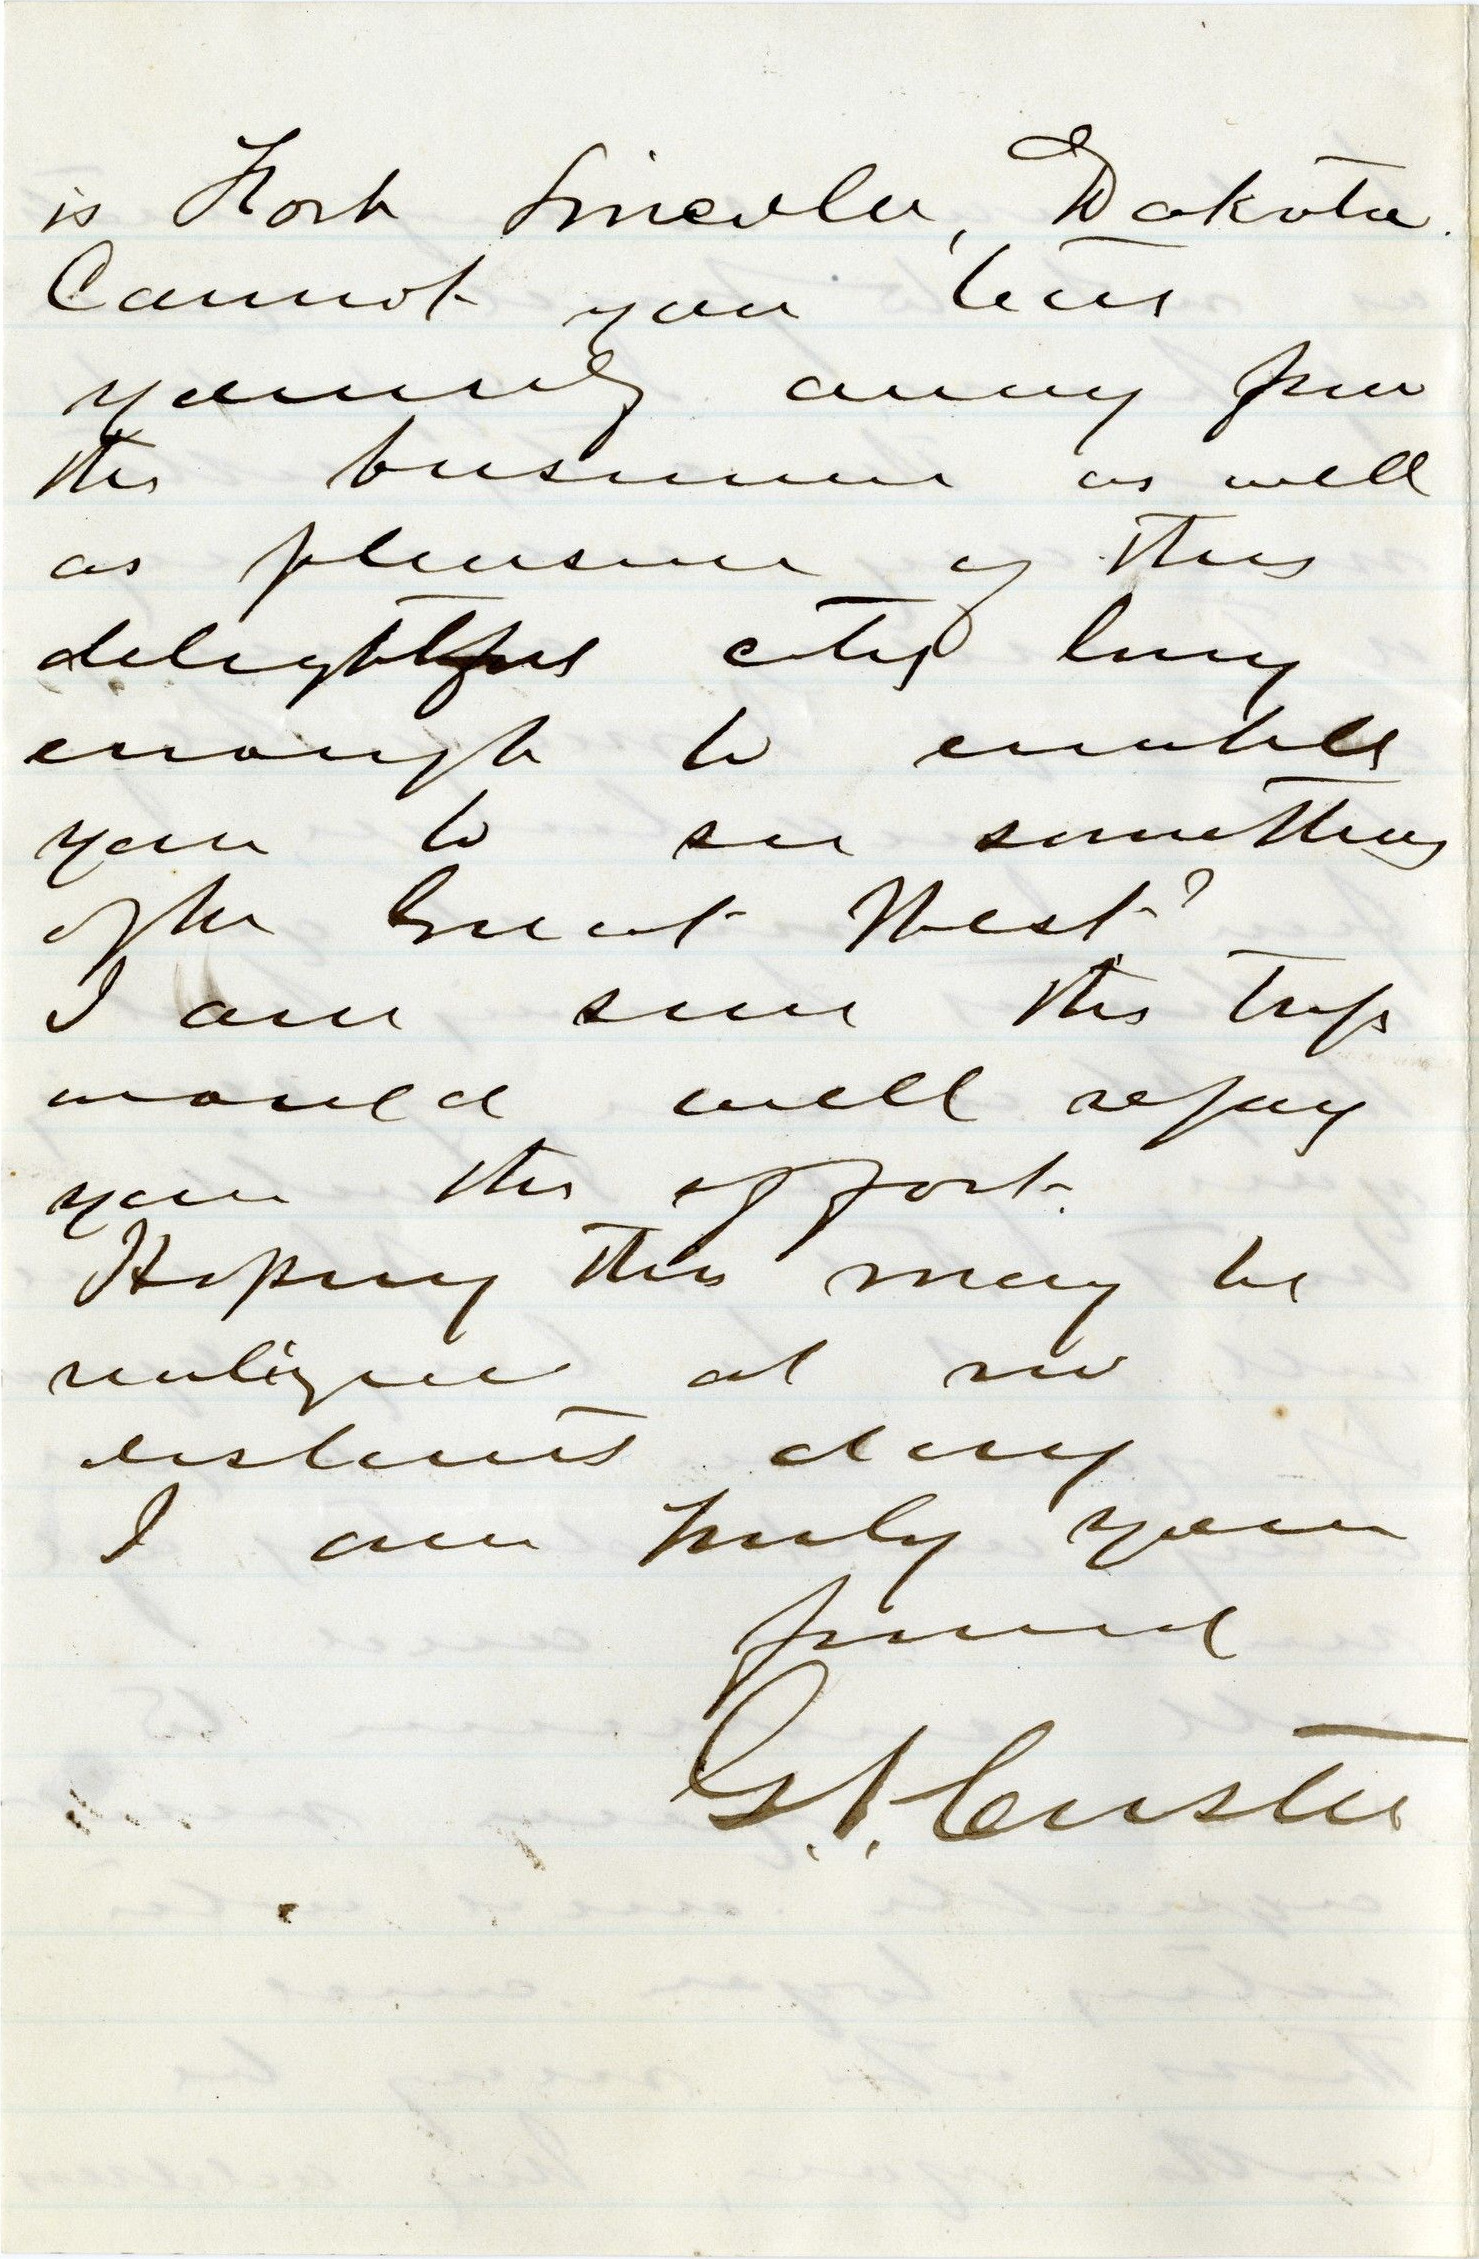 is Fort Lincoln, Dakota.
Cannot you tear
yourself away from
the business as well
as pleasure of this
delightful city long
enough to enable
you to see something
of the Great West?
I am sure the trip
would well repay
you the effort.
Hoping this may be
realized at no
distant day
I am truly your
friend
G. A. Custer